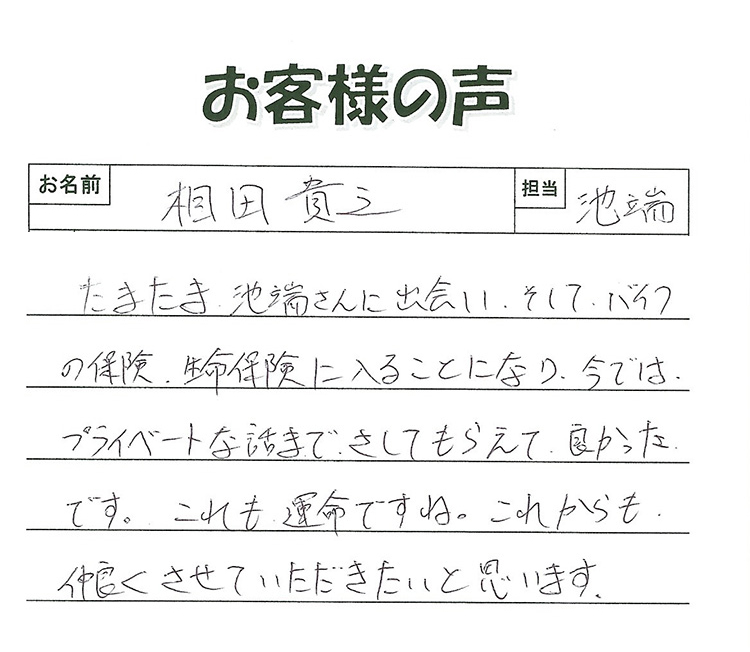 お客様の声
お名前 相田 貴之 担当 池端
たまたま、池端さんに出会い、そして、バイク
の保険、生命保険に入ることになり、今では、
プライベートな話まで、さしてもらえて、良かった
です。これも、運命ですね。これからも、
仲良くさせていただきたいと思います。